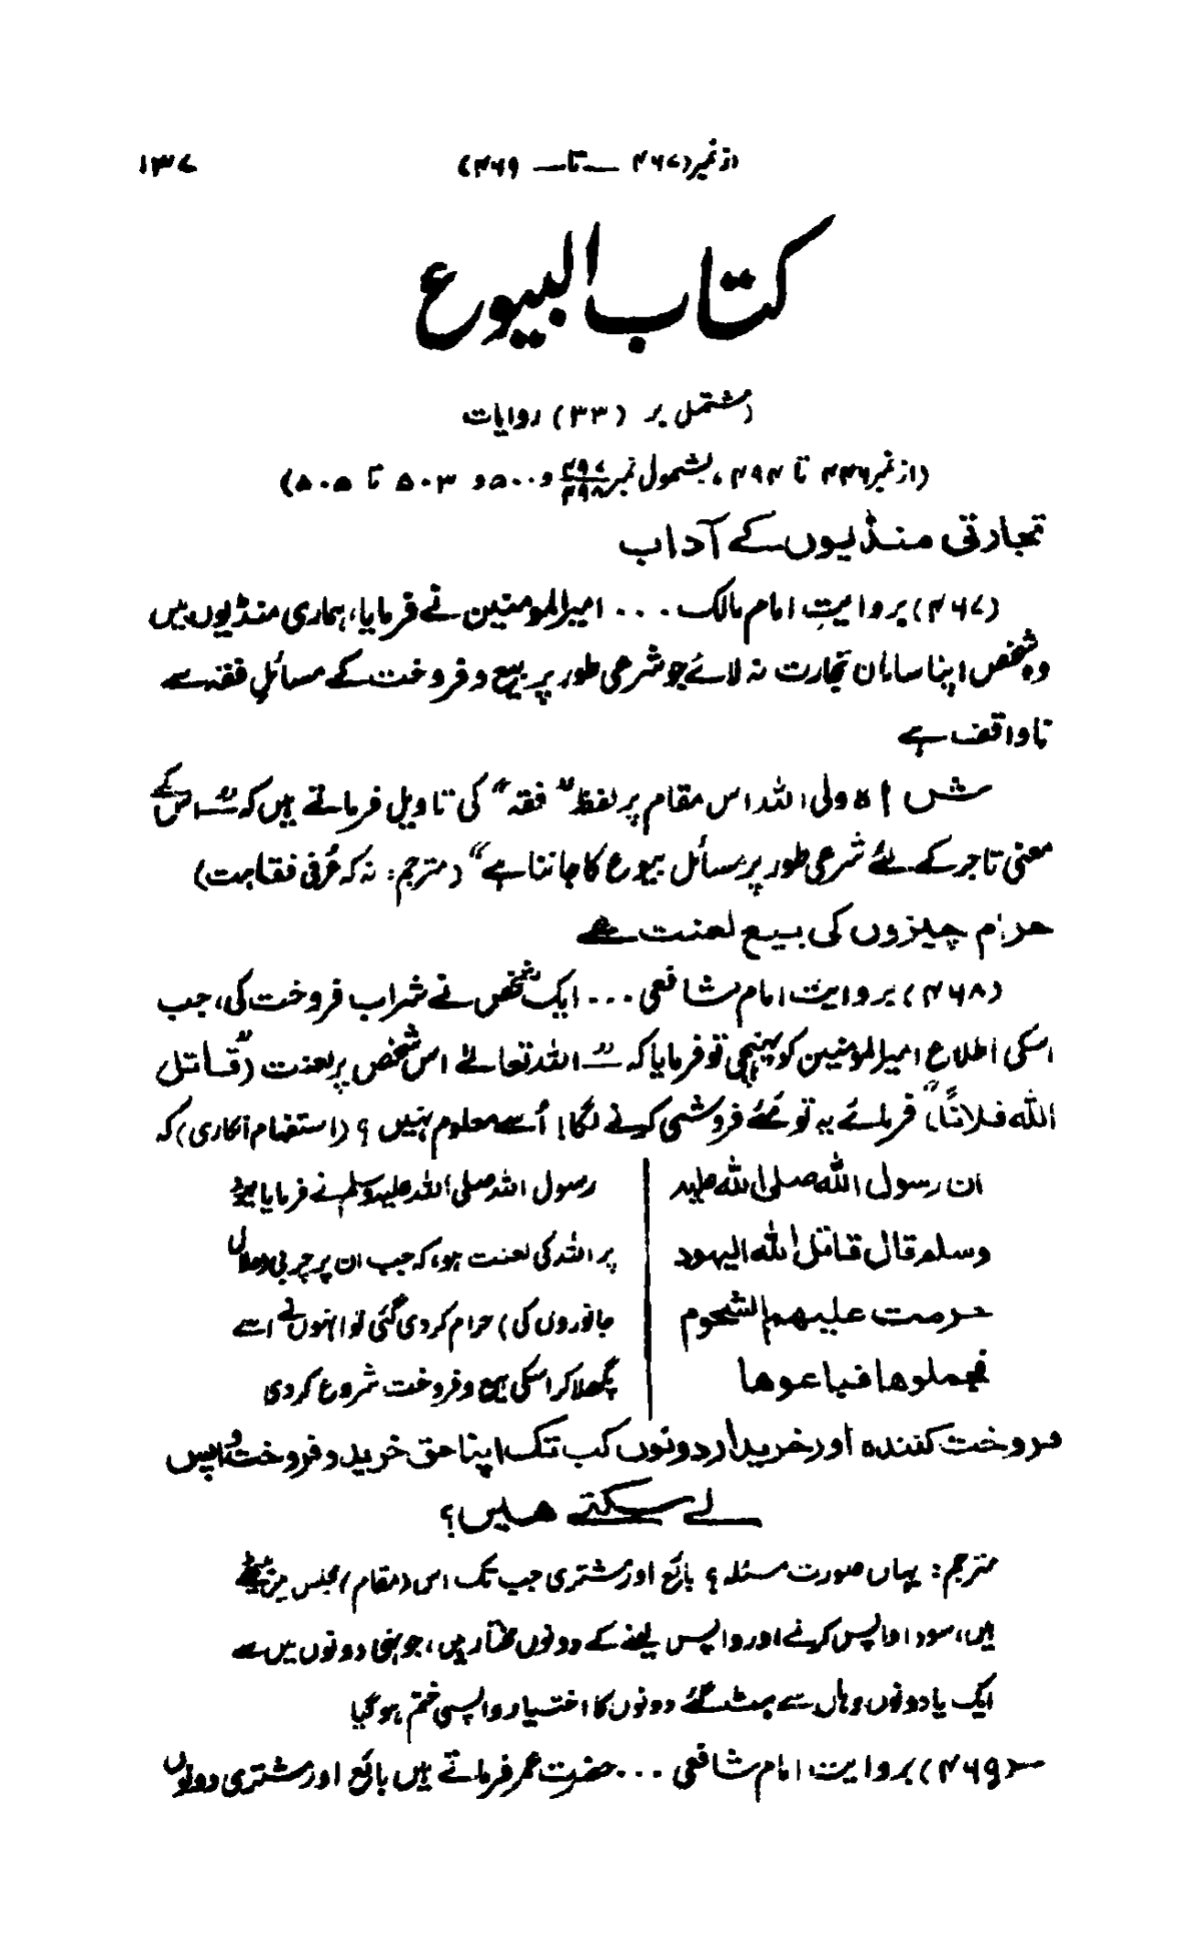 (از نمبر (۴۶۷ — تا — ۴۶۹) ۱۳۷
کتاب البیوع
(مشتمل بر (۳۳) روایات
(از نمبر ۴۴۶ تا ۴۹۴، بشمول نمبر ۴۹۷ ۴۹۸ و ۵۰۰ و ۵۰۳ تا ۵۰۵)
تجارتی منڈیوں کے آداب
(۴۶۷) بروایتِ امام مالک ... امیر المومنین نے فرمایا، ہماری منڈیوں میں
وہ شخص اپنا سامان تجارت نہ لائے جو شرعی طور پر بیع و فروخت کے مسائلِ فقہ سے
ناواقف ہے
شاہ ولی اللہ اس مقام پر لفظ "فقہ" کی تاویل فرماتے ہیں کہ "اس کے
معنی تاجر کے لئے شرعی طور پر مسائل بیوع کا جاننا ہے" (مترجم: نہ کہ عُرفی فقاہت)
حرام چیزوں کی بیع لعنت ہے
(۴۶۸) بروایت امام شافعی ... ایک شخص نے شراب فروخت کی، جب
اسکی اطلاع امیر المومنین کو پہنچی تو فرمایا کہ "اللہ تعالےٰ اس شخص پر لعنت ("قاتل
اللہ فلاناً") فرمائے یہ تو مئے فروشی کرنے لگا! اُسے معلوم نہیں؟ (استفہام انکاری) کہ
ان رسول اللہ صلی اللہ علیہ رسول اللہ صلی اللہ علیہ وسلم نے فرمایا یہود
وسلم قال قاتل اللہ الیہود پر اللہ کی لعنت ہو، کہ جب ان پر چربی (حلال
حرمت علیہم الشحوم جانوروں کی) حرام کر دی گئی تو انہوں نے اسے
فجملوها فباعوها پگھلا کر اسکی بیع و فروخت شروع کر دی
فروخت کنندہ اور خریدار دونوں کب تک اپنا حق خرید و فروخت واپس
لے سکتے ہیں؟
مترجم: یہاں صورت مسئلہ؟ بائع اور مشتری جب تک اس (مقام) مجلس میں بیٹھے
ہیں، سودا واپس کرنے اور واپس لینے کے دونوں مختار ہیں، جونہی دونوں میں سے
ایک یا دونوں وہاں سے ہٹ گئے دونوں کا اختیار واپسی ختم ہو گیا
(۴۶۹) بروایت امام شافعی ... حضرت عمر فرماتے ہیں بائع اور مشتری دونوں